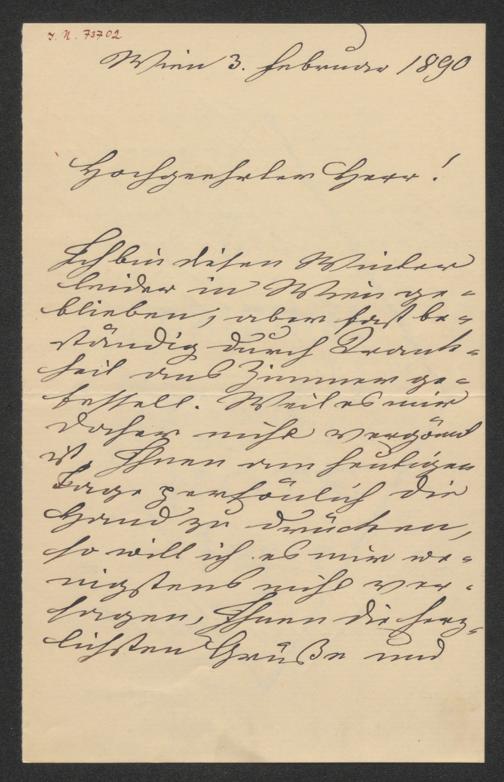 I. N. 73702
Wien 3. Februar 1890
Hochgeehrter Herr!
Ich bin disen Winter
leider in Wien ge-
blieben, aber fast be-
ständig durch Krank-
heit ans Zimmer ge-
fesselt. Weil es mir
daher nicht vergönnt
ist, Ihnen am heutigen
Tage persönlich die
Hand zu drücken,
so will ich es mir we-
nigstens nicht ver-
sagen, Ihnen die herz-
lichsten Grüße und